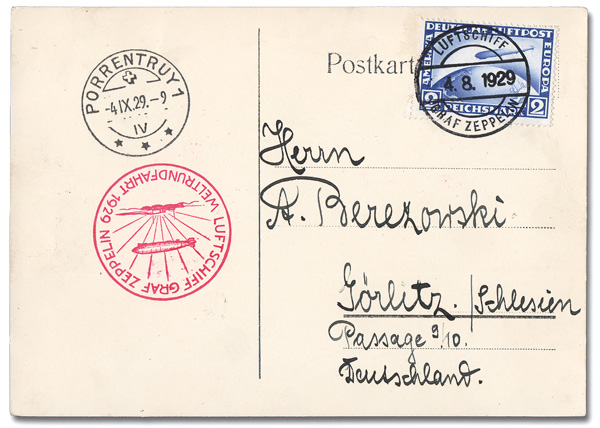 PORRENTRUY 1
-4.IX.29.-9
IV
Postkart
DEUTSCHE LUFTPOST
AMERIKA
EUROPA
2
2
LUFTSCHIFF
4.8.1929
GRAF ZEPPELIN
LUFTSCHIFF GRAF ZEPPELIN
WELTRUNDFAHRT 1929
Herrn
A. Berezowski
Görlitz./Schlesien
Passage 9/10.
Deutschland.